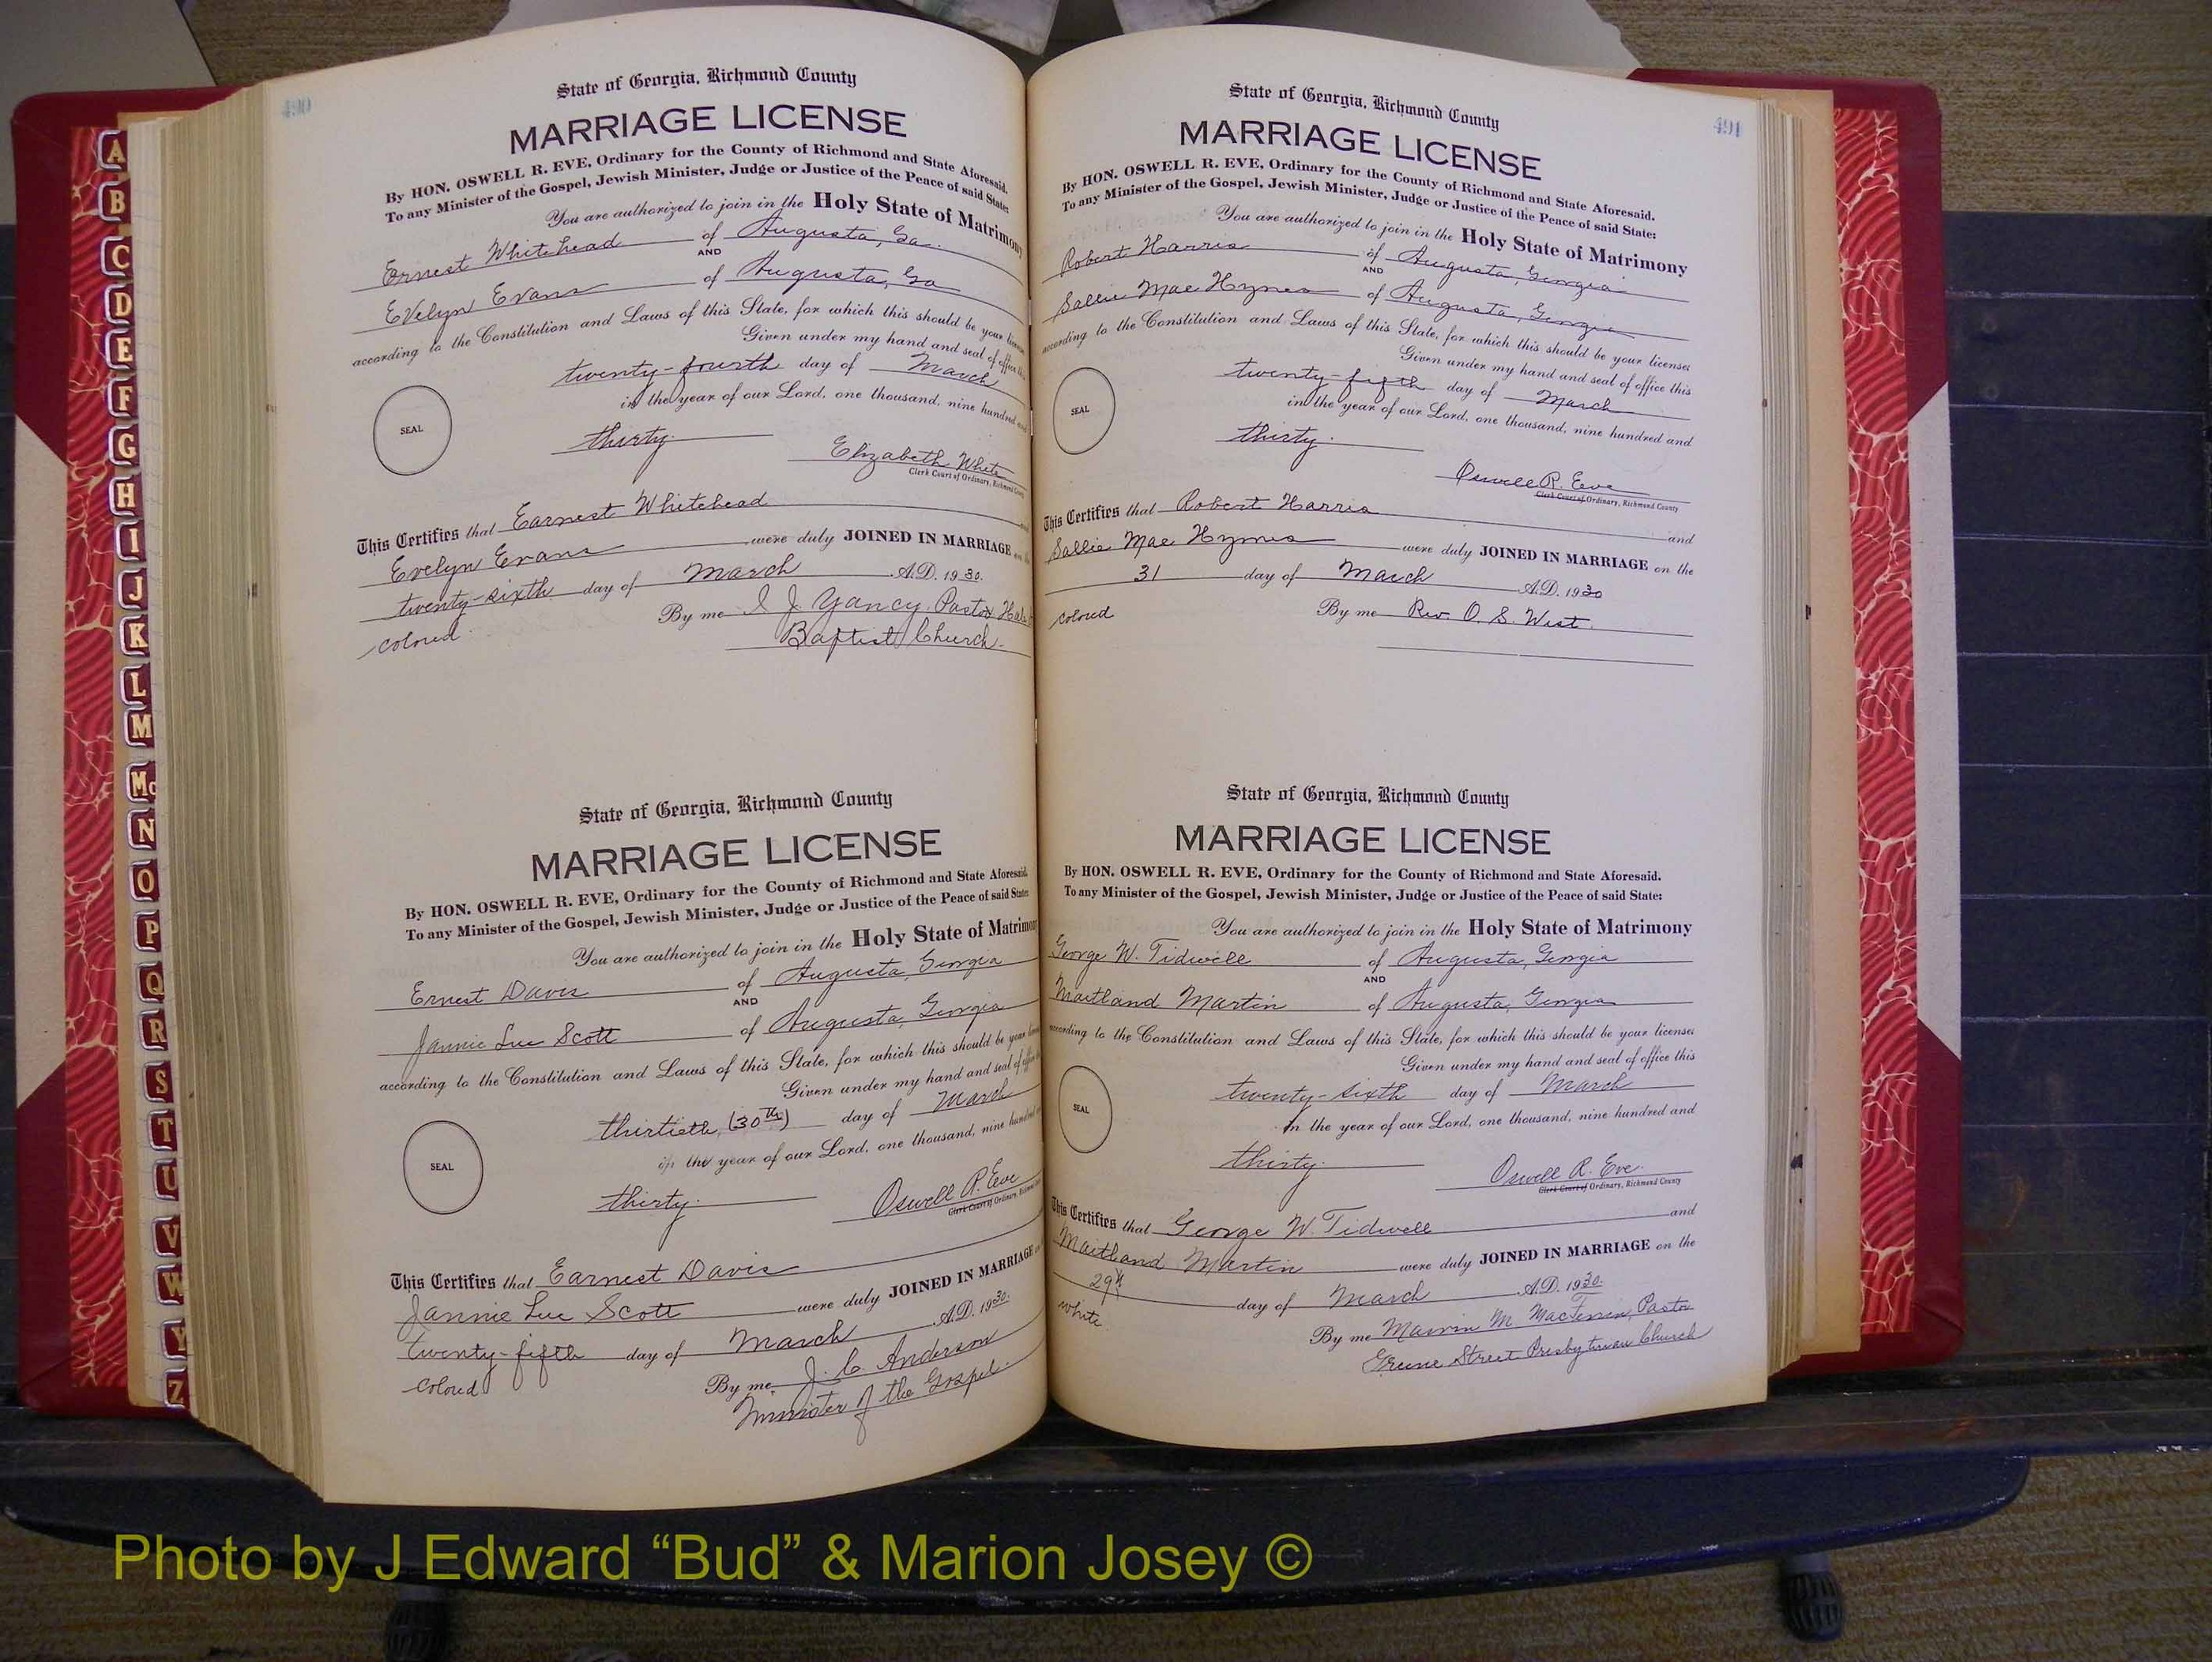 490
State of Georgia, Richmond County
MARRIAGE LICENSE
By HON. OSWELL R. EVE, Ordinary for the County of Richmond and State Aforesaid.
To any Minister of the Gospel, Jewish Minister, Judge or Justice of the Peace of said State:
You are authorized to join in the Holy State of Matrimony
Ernest Whitehead of Augusta, Ga.
AND
Evelyn Evans of Augusta, Ga
according to the Constitution and Laws of this State, for which this should be your license
Given under my hand and seal of office
twenty-fourth day of March
in the year of our Lord, one thousand, nine hundred
SEAL
thirty.
Elizabeth White
Clerk Court of Ordinary, Richmond County
This Certifies that Earnest Whitehead
Evelyn Evans were duly JOINED IN MARRIAGE on
twenty-sixth day of March A.D. 1930.
colored By me J. Yancy, Pastor
Baptist Church.
State of Georgia, Richmond County
MARRIAGE LICENSE
By HON. OSWELL R. EVE, Ordinary for the County of Richmond and State Aforesaid.
To any Minister of the Gospel, Jewish Minister, Judge or Justice of the Peace of said State:
You are authorized to join in the Holy State of Matrimony
Ernest Davis of Augusta, Georgia
AND
Jannie Lue Scott of Augusta, Georgia
according to the Constitution and Laws of this State, for which this should be your
Given under my hand and seal of office
thirtieth (30th) day of March
in the year of our Lord, one thousand, nine hundred
SEAL
thirty.
Oswell R. Eve
Clerk Court of Ordinary, Richmond
This Certifies that Earnest Davis
Jannie Lue Scott were duly JOINED IN MARRIAGE
twenty-fifth day of March A.D. 1930.
colored By me J. C. Anderson
Minister of the Gospel.
491
State of Georgia, Richmond County
MARRIAGE LICENSE
By HON. OSWELL R. EVE, Ordinary for the County of Richmond and State Aforesaid.
To any Minister of the Gospel, Jewish Minister, Judge or Justice of the Peace of said State:
You are authorized to join in the Holy State of Matrimony
Robert Harris of Augusta, Georgia
AND
Sallie Mae Hymes of Augusta, Georgia
according to the Constitution and Laws of this State, for which this should be your license;
Given under my hand and seal of office this
twenty-fifth day of March
in the year of our Lord, one thousand, nine hundred and
SEAL
thirty.
Oswell R. Eve
Clerk Court of Ordinary, Richmond County
This Certifies that Robert Harris and
Sallie Mae Hymes were duly JOINED IN MARRIAGE on the
31 day of March A.D. 1930
colored By me Rev. O. S. West.
State of Georgia, Richmond County
MARRIAGE LICENSE
By HON. OSWELL R. EVE, Ordinary for the County of Richmond and State Aforesaid.
To any Minister of the Gospel, Jewish Minister, Judge or Justice of the Peace of said State:
You are authorized to join in the Holy State of Matrimony
George W. Tidwell of Augusta, Georgia
AND
Maitland Martin of Augusta, Georgia
according to the Constitution and Laws of this State, for which this should be your license;
Given under my hand and seal of office this
twenty-sixth day of March
in the year of our Lord, one thousand, nine hundred and
SEAL
thirty.
Oswell R. Eve.
Clerk Court of Ordinary, Richmond County
This Certifies that George W. Tidwell and
Maitland Martin were duly JOINED IN MARRIAGE on the
29th day of March A.D. 1930.
white By me Marvin M. Pastor
Greene Street Presbyterian Church
A
B
C
D
E
F
G
H
I
J
K
L
M
Mc
N
O
P
Q
R
S
T
U
V
W
Y
Z
Photo by J Edward “Bud” & Marion Josey ©